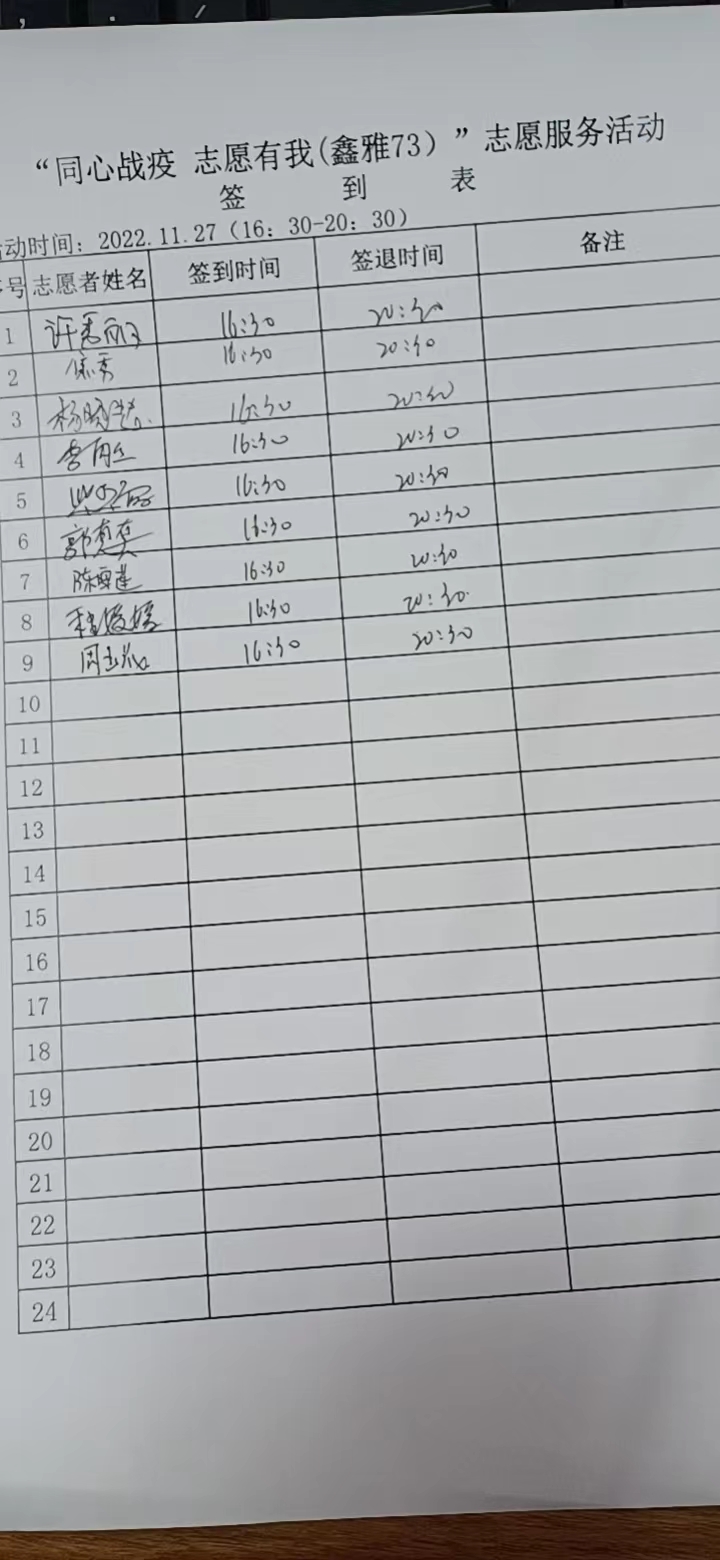 “同心战疫 志愿有我(鑫雅73)”志愿服务活动
签 到 表
动时间：2022.11.27（16：30-20：30）
号 志愿者姓名 签到时间 签退时间 备注
1 16:30 20:30
2 16:30 20:30
3 16:30 20:30
4 16:30 20:30
5 16:30 20:30
6 16:30 20:30
7 陈雪莲 16:30 20:30
8 程媛媛 16:30 20:30
9 16:30 20:30
10
11
12
13
14
15
16
17
18
19
20
21
22
23
24